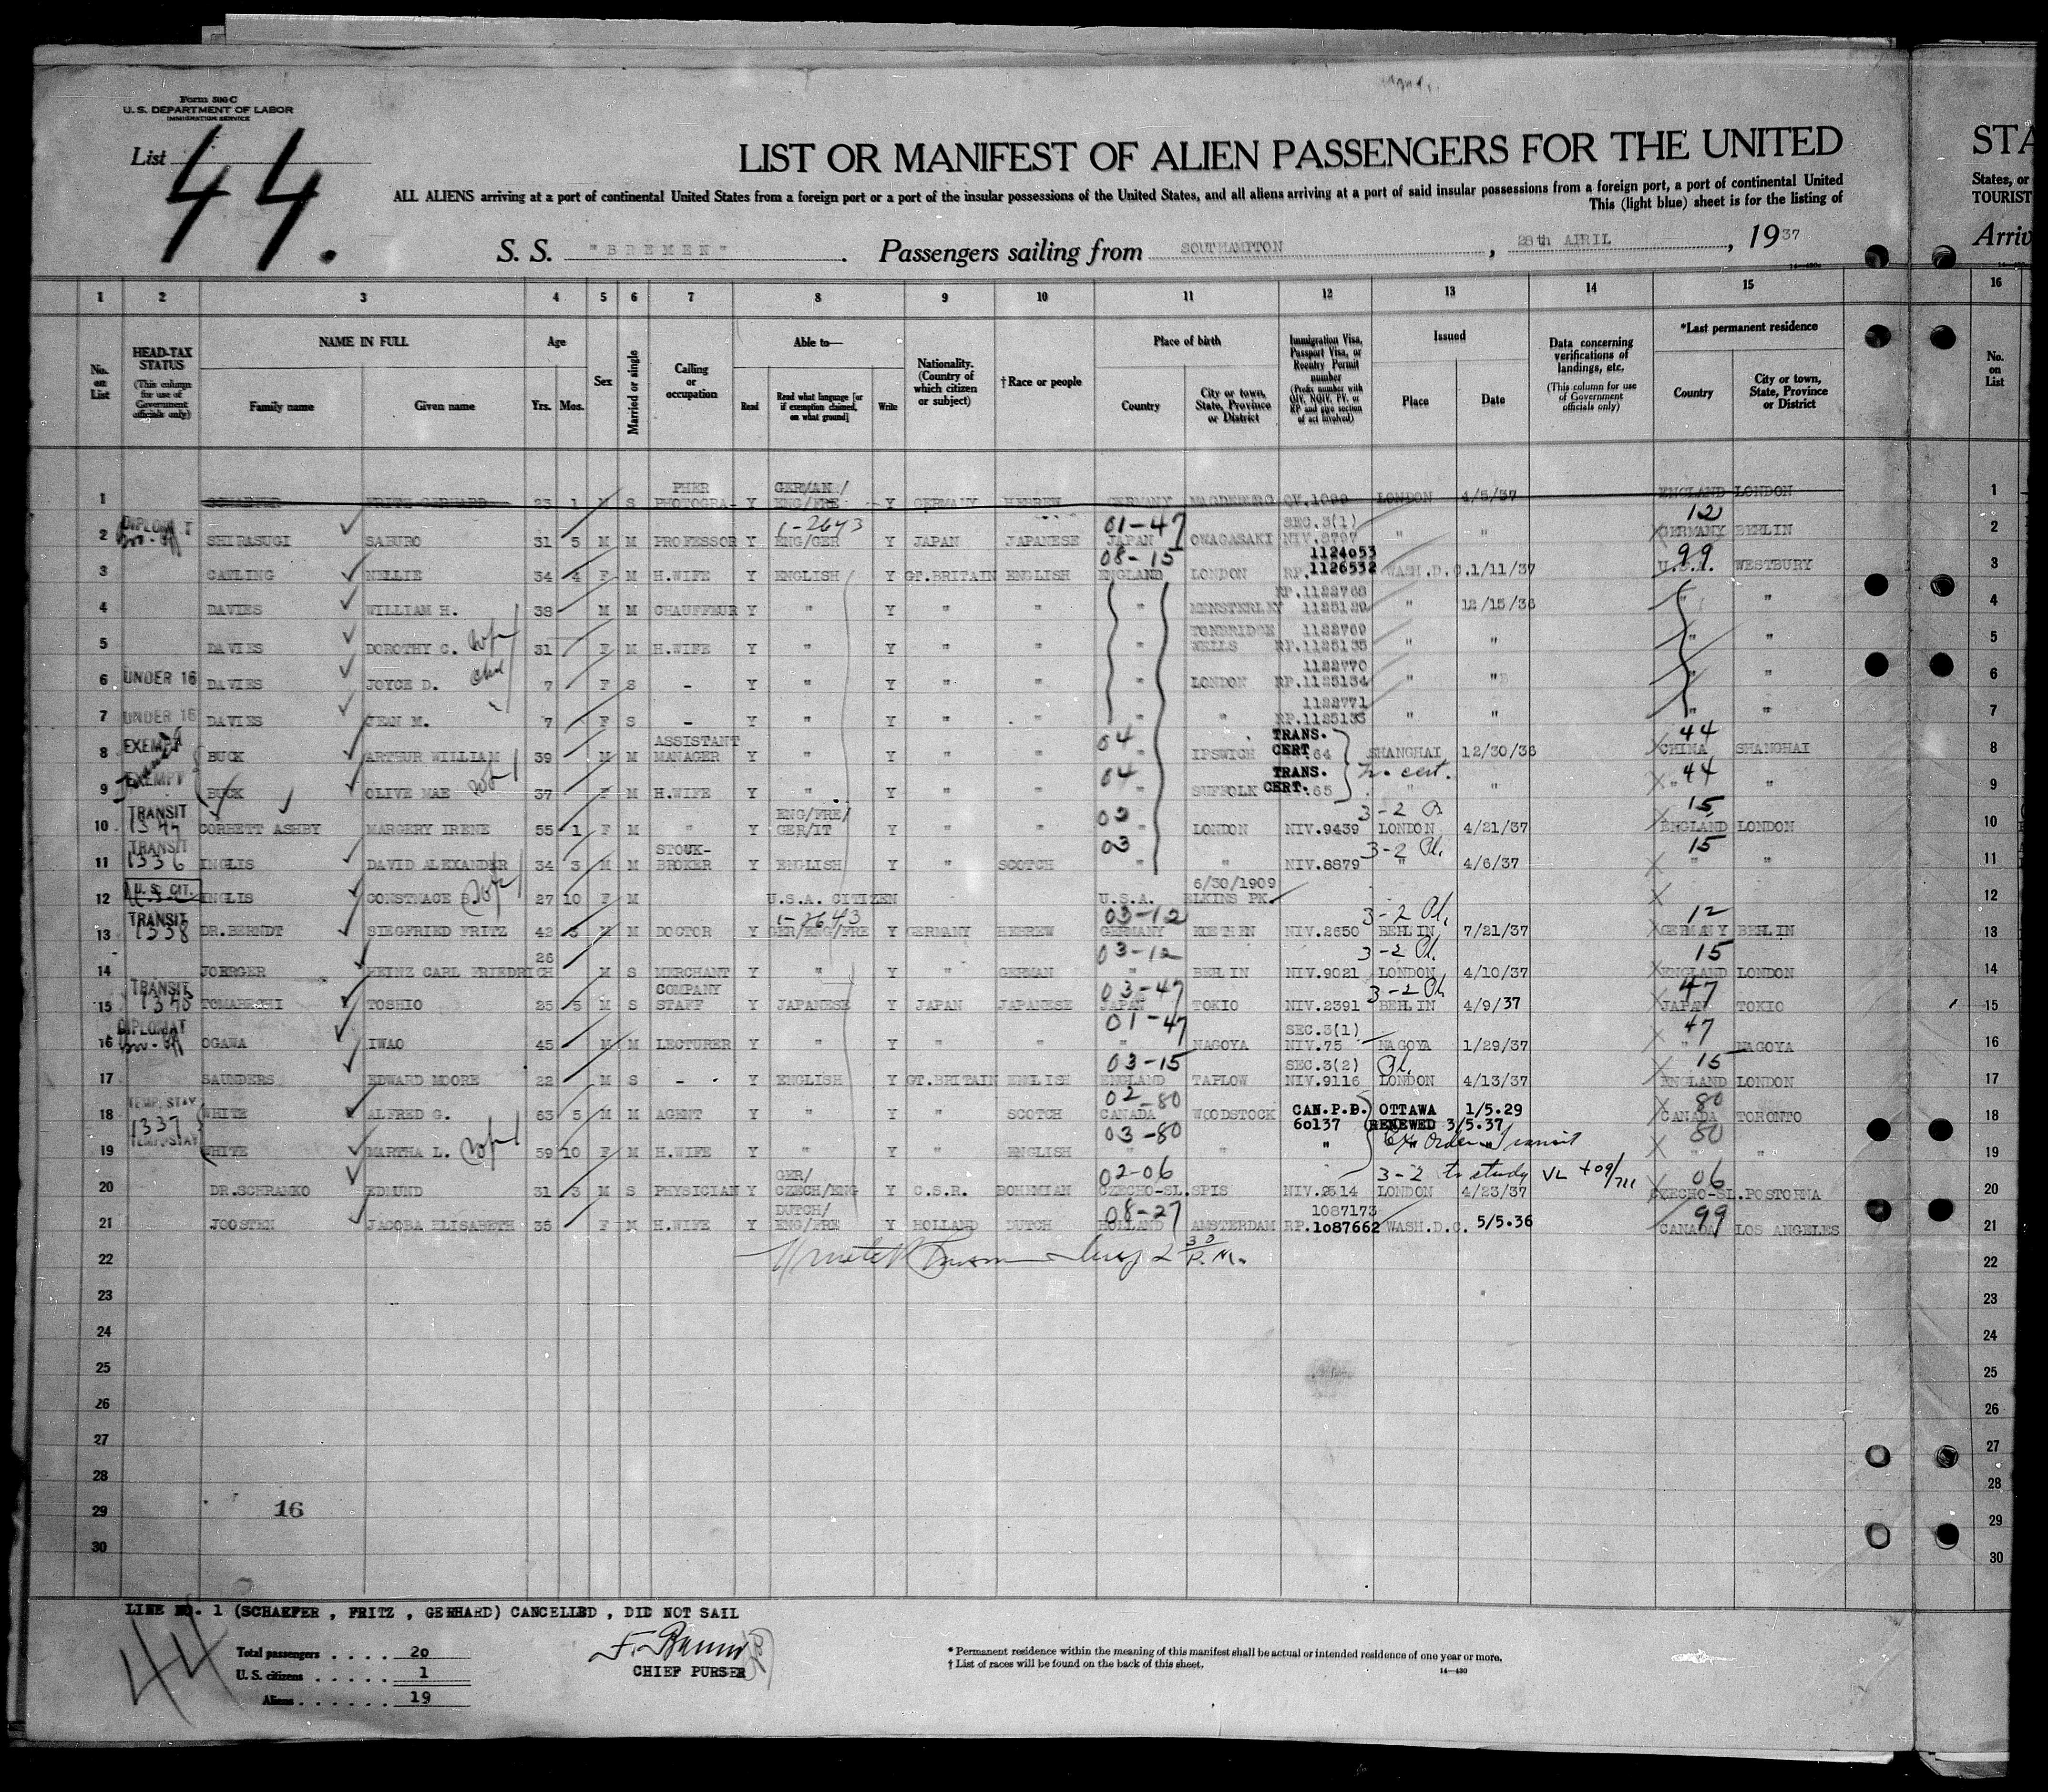 Form 500 C
U. S. DEPARTMENT OF LABOR
IMMIGRATION SERVICE
List 44.
LIST OR MANIFEST OF ALIEN PASSENGERS FOR THE UNITED
STA
ALL ALIENS arriving at a port of continental United States from a foreign port or a port of the insular possessions of the United States, and all aliens arriving at a port of said insular possessions from a foreign port, a port of continental United
States, or
This (light blue) sheet is for the listing of
TOURIST
S. S. "BREMEN". Passengers sailing from SOUTHAMPTON, 28th APRIL, 1937
Arriv
1 2 3 4 5 6 7 8 9 10 11 12 13 14 15 16
No. on List
HEAD-TAX STATUS (This column for use of Government officials only)
NAME IN FULL Family name Given name
Age Yrs. Mos.
Sex
Married or single
Calling or occupation
Able to— Read Read what language [or if exemption claimed, on what ground] Write
Nationality. (Country of which citizen or subject)
†Race or people
Place of birth Country City or town, State, Province or District
Immigration Visa, Passport Visa, or Reentry Permit number (Prefix number with QIV, NQIV, PV, or RP and give section of act involved)
Issued Place Date
Data concerning verifications of landings, etc. (This column for use of Government officials only)
*Last permanent residence Country City or town, State, Province or District
No. on List
1 SCHAEFER FRITZ GERHARD 23 1 M S PHOTOGRAPHER Y GERMAN/ ENG/FRE Y GERMANY HEBREW GERMANY MAGDEBURG QV.1099 LONDON 4/5/37 ENGLAND LONDON 1
2 DIPLOMAT SHIRASUGI SABURO 31 5 M M PROFESSOR Y 1-2643 ENG/GER Y JAPAN JAPANESE 01-47 JAPAN OWAGASAKI SEC.3(1) NIV.8797 " " 12 GERMANY BERLIN 2
3 CATLING NELLIE 34 4 F M H.WIFE Y ENGLISH Y GT.BRITAIN ENGLISH 08-15 ENGLAND LONDON 1124053 RP.1126532 WASH.D.C. 1/11/37 99 U.S.A. WESTBURY 3
4 DAVIES WILLIAM H. 38 M M CHAUFFEUR Y " Y " " " MINSTERLEY RP.1122768 1125129 " 12/15/36 " " 4
5 DAVIES DOROTHY C. 31 F M H.WIFE Y " Y " " " TONBRIDGE WELLS 1122769 RP.1125135 " " " " 5
6 UNDER 16 DAVIES JOYCE D. 7 F S - Y " Y " " " LONDON 1122770 RP.1125134 " " " " 6
7 UNDER 16 DAVIES JEAN M. 7 F S - Y " Y " " " " 1122771 RP.1125133 " " " " 7
8 EXEMPT BUCK ARTHUR WILLIAM 39 M M ASSISTANT MANAGER Y " Y " " 04 " IPSWICH TRANS. CERT.64 SHANGHAI 12/30/36 44 CHINA SHANGHAI 8
9 EXEMPT BUCK OLIVE MAE 37 F M H.WIFE Y " Y " " 04 " SUFFOLK TRANS. CERT.65 Tr. cert. " " 44 " " 9
10 TRANSIT CORBETT ASHBY MARGERY IRENE 55 1 F M " Y ENG/FRE/ GER/IT Y " " 03 " LONDON NIV.9439 3-2 LONDON 4/21/37 15 ENGLAND LONDON 10
11 TRANSIT 1336 INGLIS DAVID ALEXANDER 34 3 M M STOCK-BROKER Y ENGLISH Y " SCOTCH 03 " " NIV.8879 3-2 Pl. " 4/6/37 15 " " 11
12 U.S. CIT. INGLIS CONSTNACE B. 27 10 F M U.S.A. CITIZEN U.S.A. 6/30/1909 ELKINS PK. 12
13 TRANSIT 1338 DR.BERNDT SIEGFRIED FRITZ 42 3 M M DOCTOR Y 1-2643 GER/ENG/FRE Y GERMANY HEBREW 03-12 GERMANY KOETHEN NIV.2650 3-2 Pl. BERLIN 7/21/37 12 GERMANY BERLIN 13
14 JOERGER HEINZ CARL FRIEDRICH 26 M S MERCHANT Y " Y " GERMAN 03-12 " BERLIN NIV.9021 3-2 Pl. LONDON 4/10/37 15 ENGLAND LONDON 14
15 TRANSIT 1345 TOMABECHI TOSHIO 25 5 M S COMPANY STAFF Y JAPANESE Y JAPAN JAPANESE 03-47 JAPAN TOKIO NIV.2391 3-2 Pl. BERLIN 4/9/37 47 JAPAN TOKIO 15
16 DIPLOMAT OGAWA IWAO 45 M M LECTURER Y " Y " " 01-47 " NAGOYA SEC.3(1) NIV.75 NAGOYA 1/29/37 47 " NAGOYA 16
17 SAUNDERS EDWARD MOORE 22 M S - Y ENGLISH Y GT.BRITAIN ENGLISH 03-15 ENGLAND TAPLOW SEC.3(2) NIV.9116 Pl. LONDON 4/13/37 15 ENGLAND LONDON 17
18 TEMP. STAY WHITE ALFRED G. 63 5 M M AGENT Y " Y " SCOTCH 02-80 CANADA WOODSTOCK CAN.P.P. 60137 OTTAWA 1/5.29 RENEWED 3/5.37 80 CANADA TORONTO 18
19 1337 TEMP. STAY WHITE MARTHA L. 59 10 F M H.WIFE Y " Y " ENGLISH 03-80 " " " Ex Order Transit 80 " " 19
20 DR.SCHRAMKO EDMUND 31 3 M S PHYSICIAN Y GER/ CZECH/ENG Y C.S.R. BOHEMIAN 02-06 CZECHO-SL. SPIS NIV.2514 3-2 to study LONDON 4/23/37 06 CZECHO-SL. POSTORNA 20
21 JOOSTEN JACOBA ELISABETH 35 F M H.WIFE Y DUTCH/ ENG/FRE Y HOLLAND DUTCH 08-27 HOLLAND AMSTERDAM 1087173 RP.1087662 WASH.D.C. 5/5.36 99 CANADA LOS ANGELES 21
22 2 30 P.M. 22
23 23
24 24
25 25
26 26
27 27
28 28
29 16 29
30 30
LINE NO. 1 (SCHAEFER, FRITZ, GERHARD) CANCELLED, DID NOT SAIL
44
Total passengers . . . . 20
U. S. citizens . . . . . 1
Aliens . . . . . . 19
CHIEF PURSER
* Permanent residence within the meaning of this manifest shall be actual or intended residence of one year or more.
† List of races will be found on the back of this sheet.
14—430